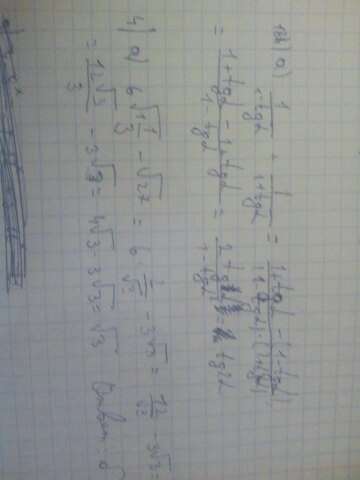 а) 1/(1-tgα) - 1/(1+tgα) = (1+tgα-(1-tgα))/((1-tgα)(1+tgα))
= (1+tgα-1+tgα)/(1-tgα) = 2tgα/(1-tgα) = tg2α
4) а) 6√(1 1/3) - √27 = 6 · 2/√3 - 3√3 = 12/√3 - 3√3 =
= 12√3/3 - 3√3 = 4√3 - 3√3 = √3 Ответ: